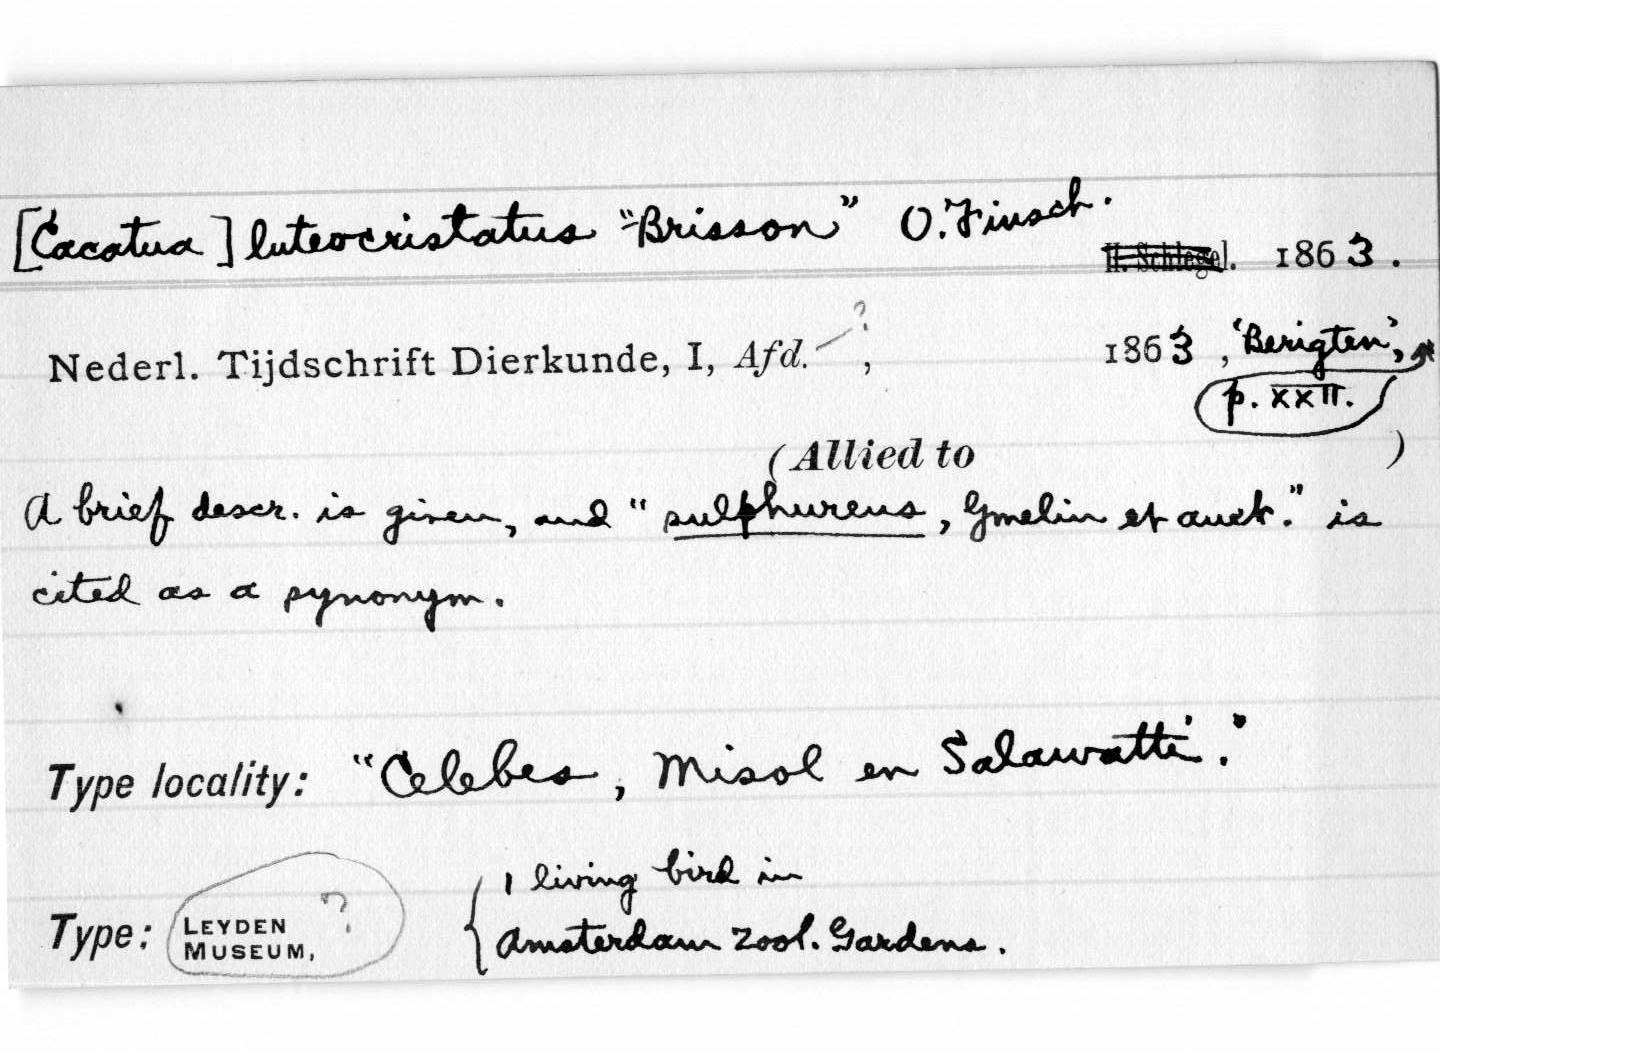 [Cacatua] luteocristatus "Brisson" O. Finsch.
H. Schlegel. 1863.
?
Nederl. Tijdschrift Dierkunde, I, Afd. , 1863, 'Berigten',
p. XXII.
(Allied to )
A brief descr. is given, and "sulphureus, Gmelin et auct." is
cited as a synonym.
Type locality: "Celebes, Misol en Salawatti."
Type: LEYDEN MUSEUM, ? { 1 living bird in
Amsterdam Zool. Gardens.